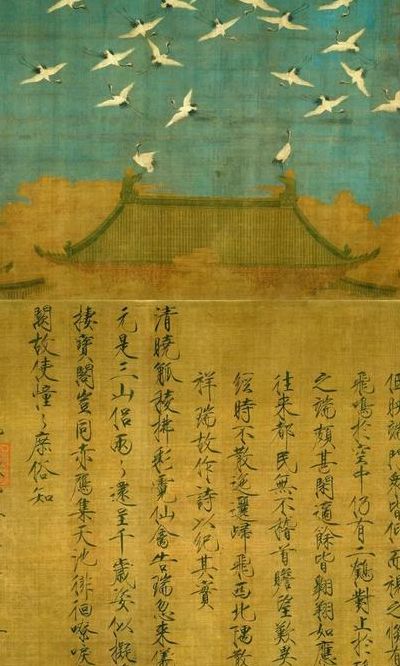 低映端門衆皆仰而視之倏有
飛鳴於空中仍有二鶴對止於
之端頗甚閑適餘皆翱翔如應
往来都民無不稽首瞻望歎異
經時不散迤邐歸飛西北隅散
祥瑞故作詩以紀其實
清曉觚稜拂彩霓仙禽告瑞忽来儀
元是三山侶兩〻還呈千歲姿似擬
棲寶閣豈同赤鴈集天池徘徊嘹唳
闕故使憧〻庶俗知